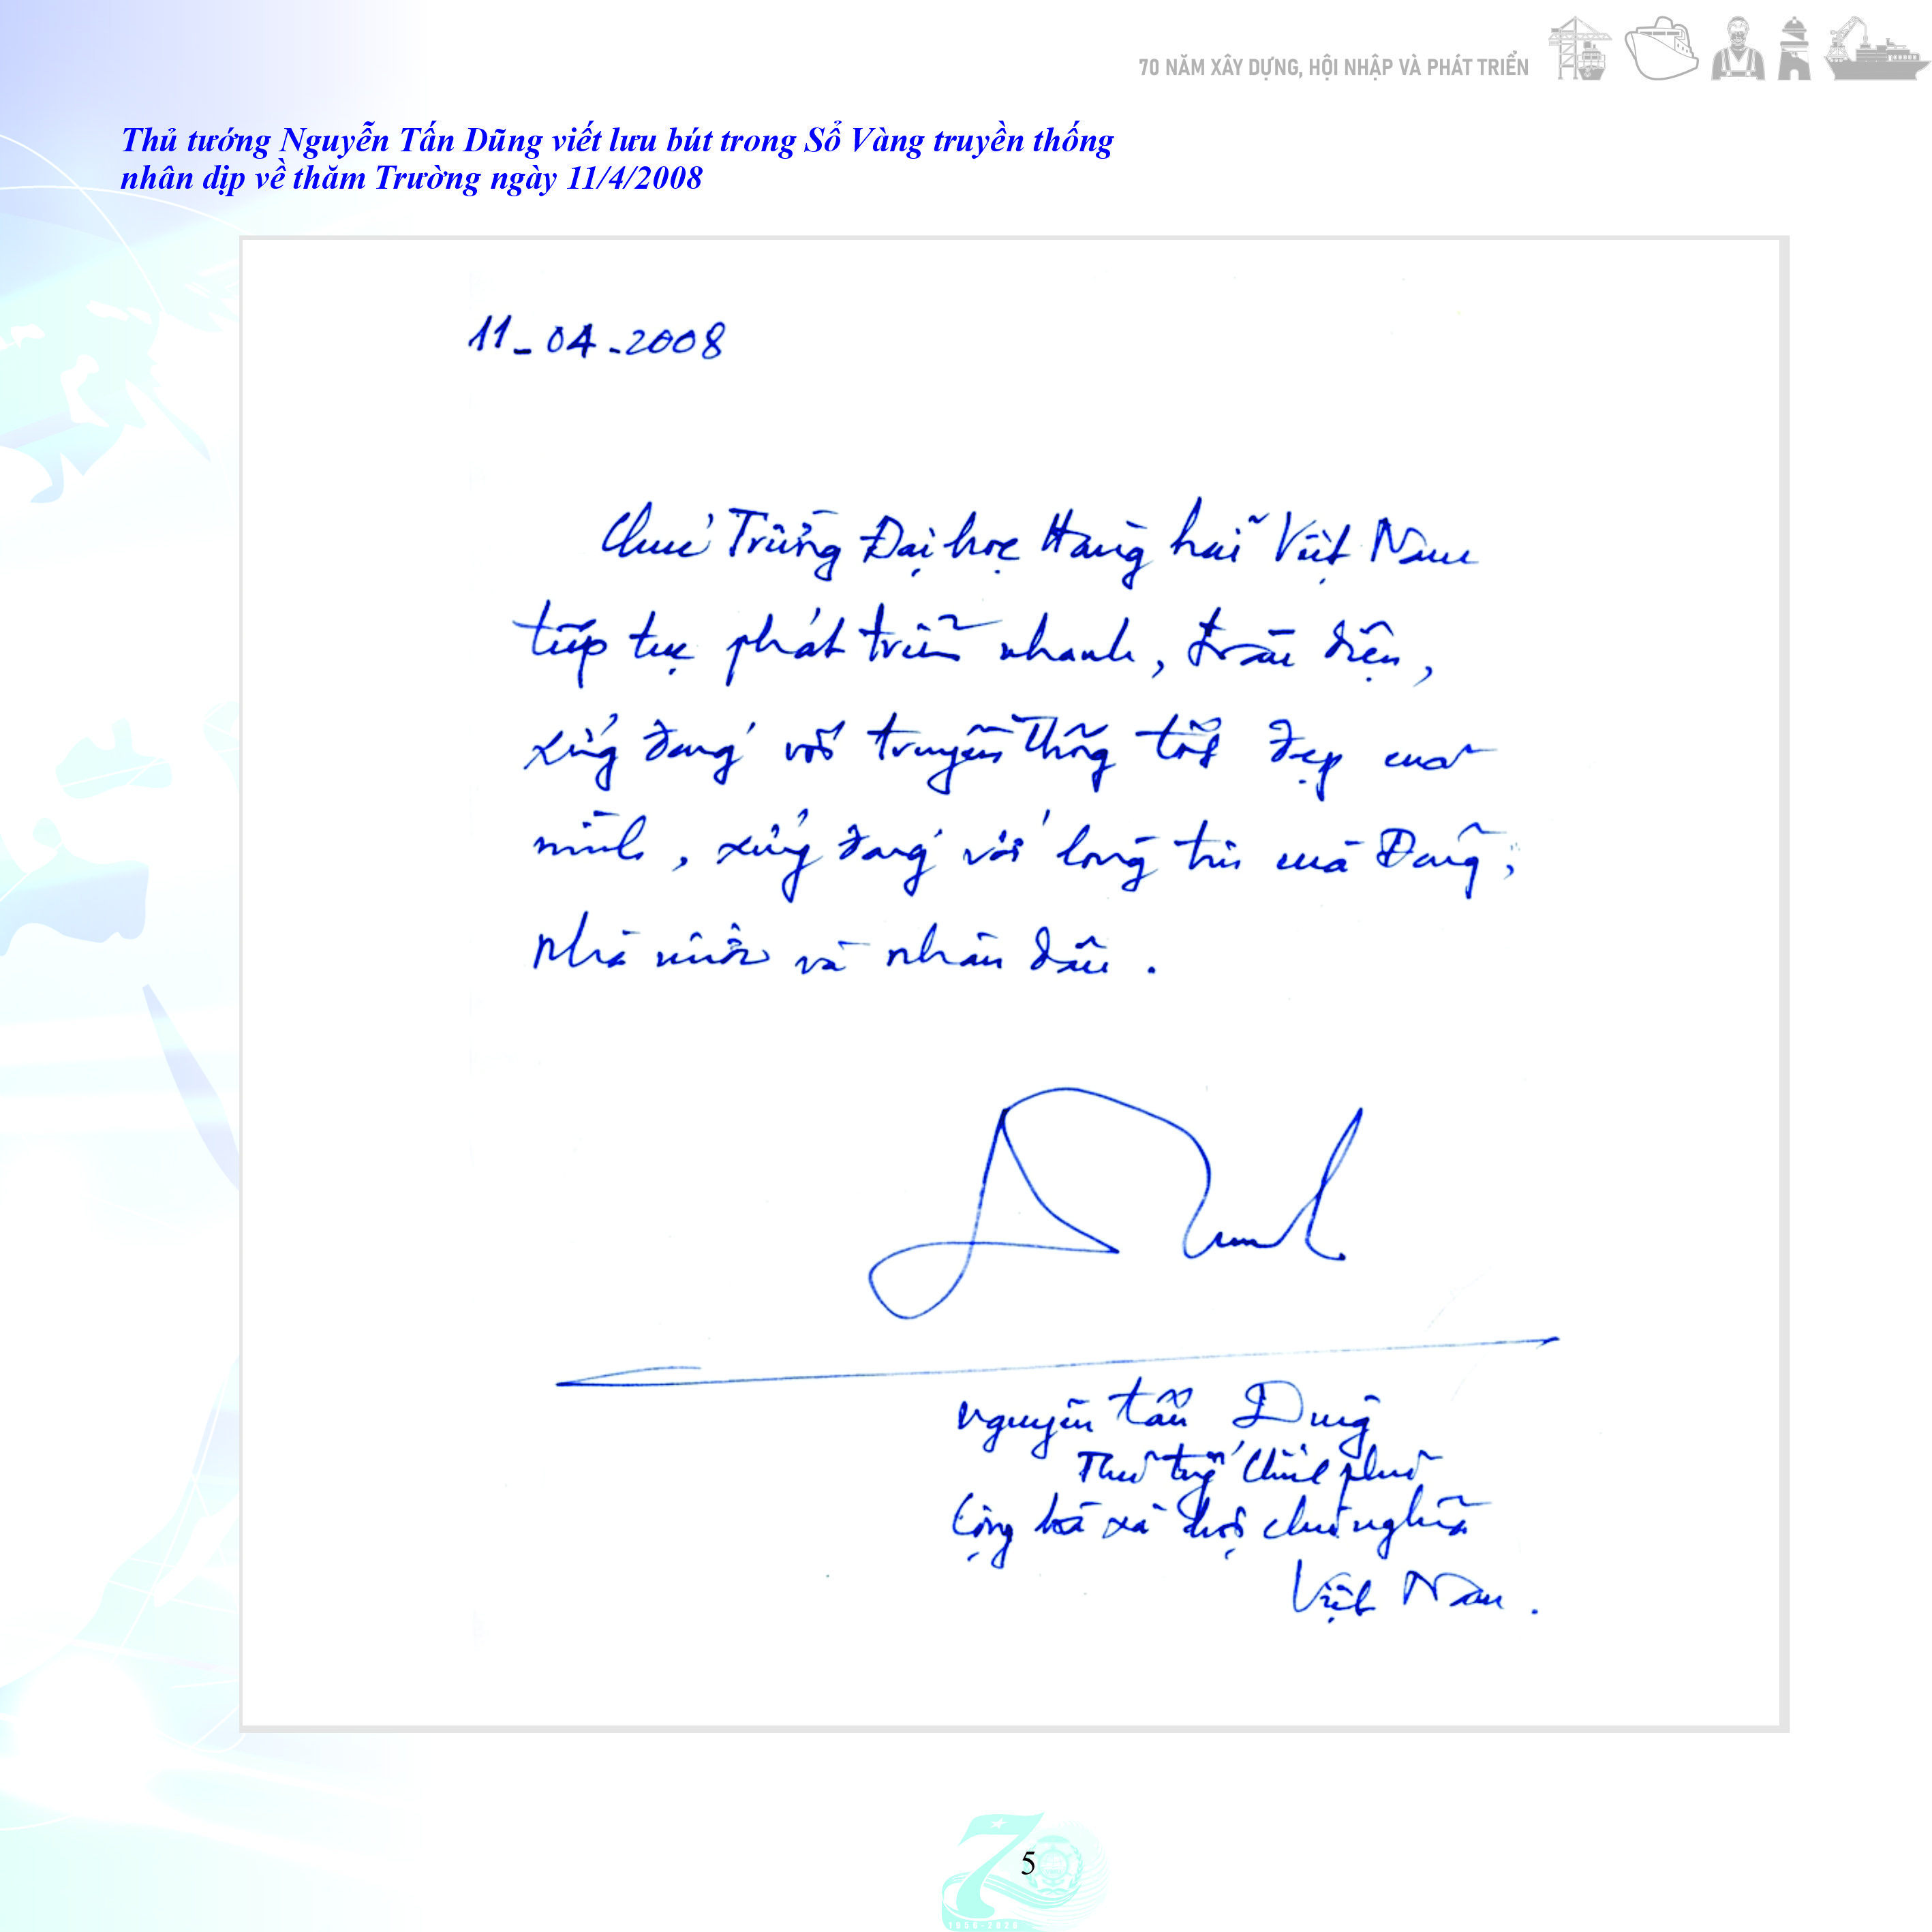 70 NĂM XÂY DỰNG, HỘI NHẬP VÀ PHÁT TRIỂN
Thủ tướng Nguyễn Tấn Dũng viết lưu bút trong Sổ Vàng truyền thống
nhân dịp về thăm Trường ngày 11/4/2008
11-04-2008
Chúc Trường Đại học Hàng hải Việt Nam
tiếp tục phát triển nhanh, toàn diện,
xứng đáng với truyền thống tốt đẹp của
mình, xứng đáng với lòng tin của Đảng,
Nhà nước và nhân dân.
Nguyễn Tấn Dũng
Thủ tướng Chính phủ
Cộng hòa xã hội chủ nghĩa
Việt Nam.
70
5